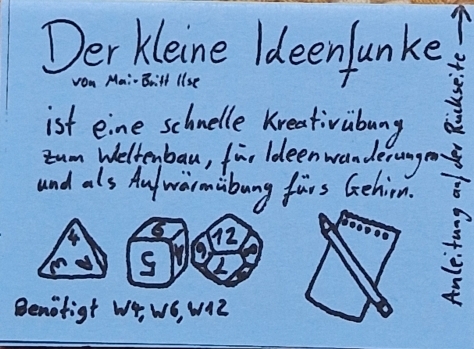 Der kleine Ideenfunke
von Mai-Britt Ilse
ist eine schnelle Kreativübung
zum Weltenbau, für Ideenwanderungen
und als Aufwärmübung fürs Gehirn.
4
6
5
12
2
Benötigt W4, W6, W12
Anleitung auf der Rückseite →